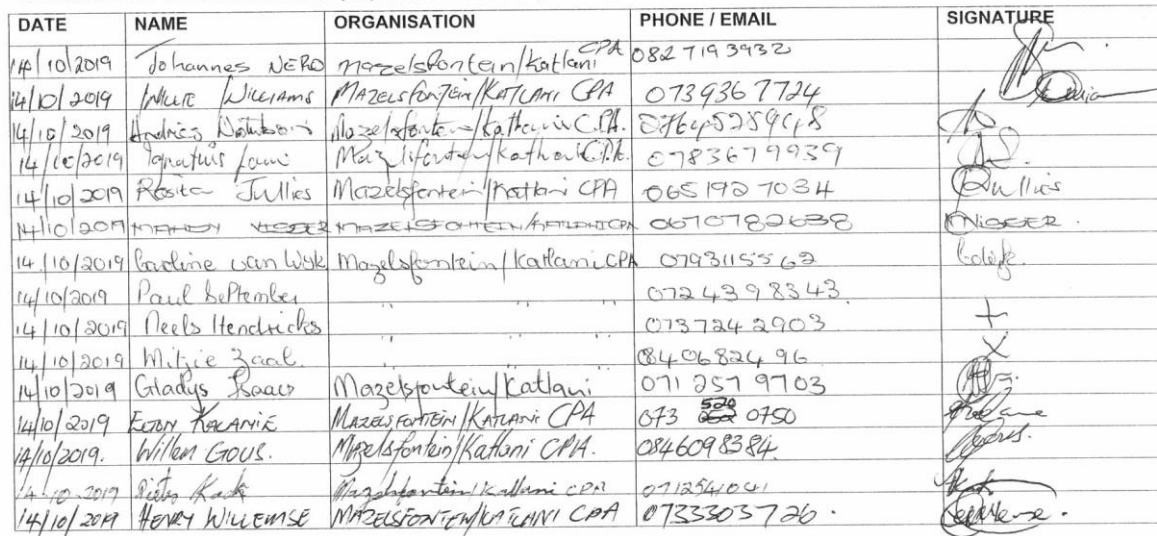 DATE NAME ORGANISATION PHONE / EMAIL SIGNATURE
14/10/2019 Johannes NERO Mazelsfontein/Katlani CPA 0827193932
14/10/2019 WILLIE WILLIAMS MAZELSFONTEIN/KATLANI CPA 0739367724
14/10/2019 Andries Mazelsfontein/Katlani C.P.A.
14/10/2019 Ignatius Mazelsfontein/Katlani C.P.A. 0783679939
14/10/2019 Rosita Jullies Mazelsfontein/Katlani CPA 0651927034 Jullies
14/10/2019 VISSER MAZELSFONTEIN/KATLANI CPA 0670782638 VISSER
14/10/2019 Caroline van Wyk Mazelsfontein/Katlani CPA 0793115562
14/10/2019 Paul September " " " 0724398343
14/10/2019 Neels Hendricks " " " 0737242903 +
14/10/2019 Mitzie Zaal " " " 0840682496 X
14/10/2019 Gladys Isaacs Mazelsfontein/Katlani 071 257 9703
14/10/2019 ELTON KALANIE MAZELSFONTEIN/KATLANI CPA 073 520 0750
14/10/2019. Willem GOUS. Mazelsfontein/Katlani CPA. 0846098384
14-10-2019 Mazelsfontein/Katlani CPA 0712541041
14/10/2019 HENRY WILLEMSE MAZELSFONTEIN/KATLANI CPA 0733303726.